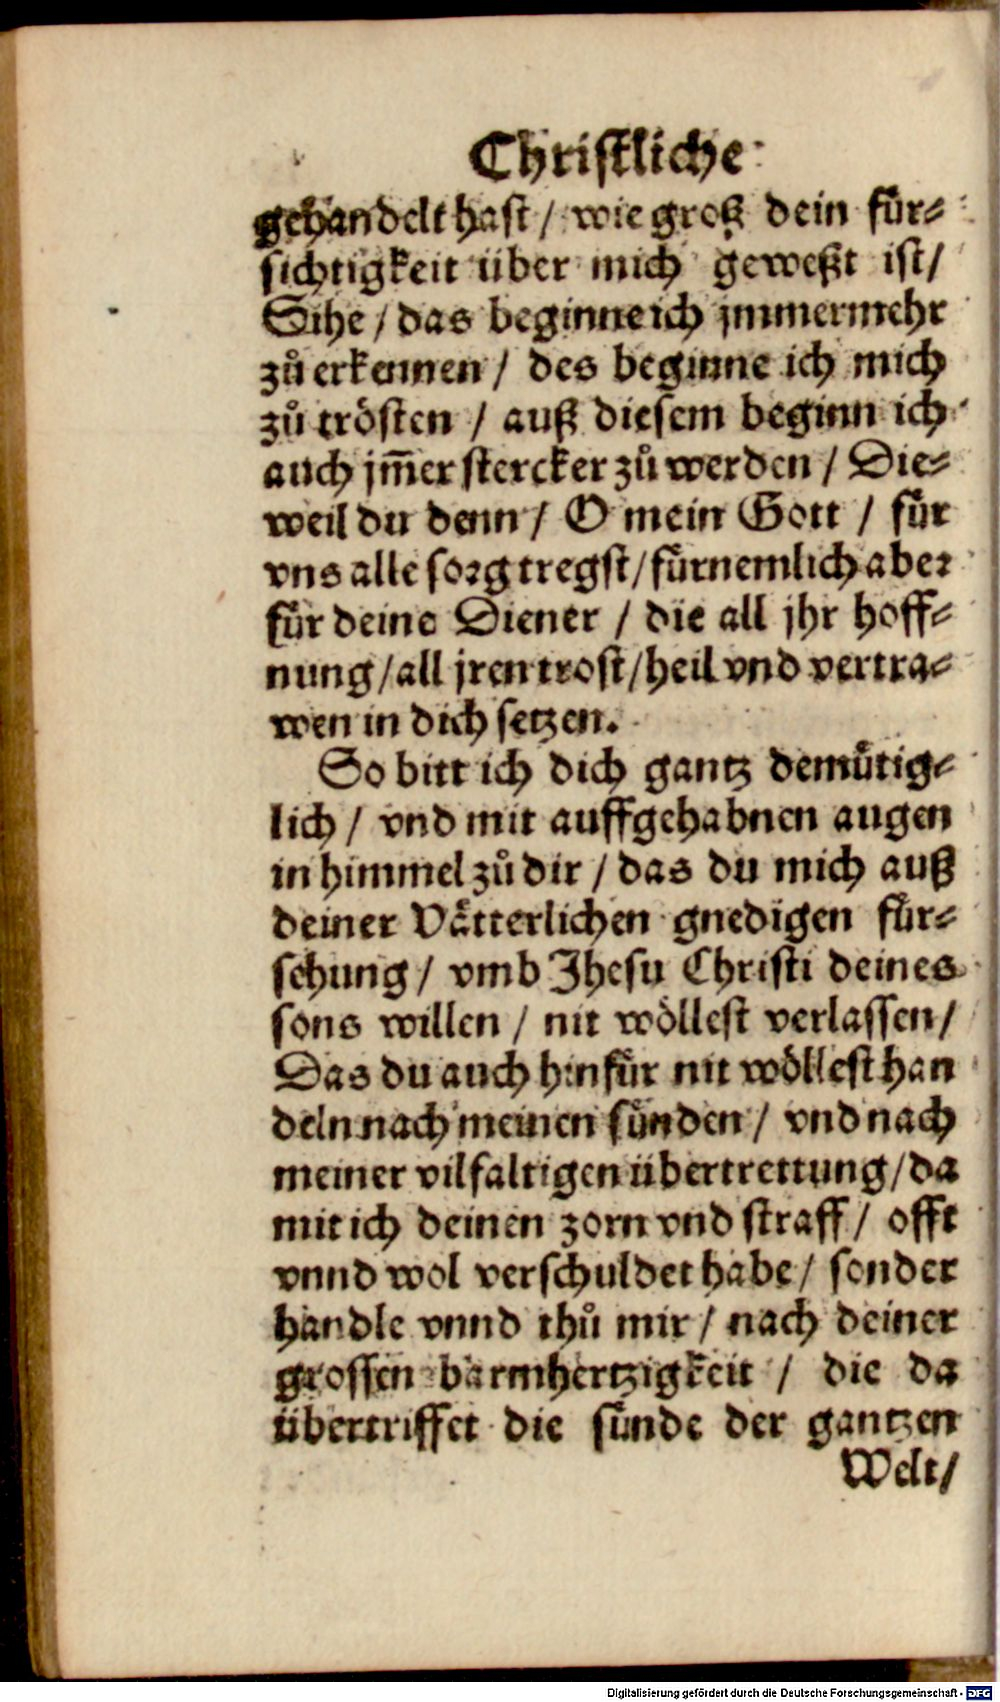 Christliche
gehandelt hast / wie groß dein fuͤr-
sichtigkeit uͤber mich geweßt ist /
Sihe / das beginne ich jmmermehr
zuͦ erkennen / des beginne ich mich
zuͦ troͤsten / auß diesem beginn ich
auch jm̄er stercker zuͦ werden / Die-
weil du denn / O mein Gott / fuͤr
vns alle sorg tregst / fuͤrnemlich aber
fuͤr deine Diener / die all jhr hoff-
nung / all jren trost / heil vnd vertra-
wen in dich setzen.
So bitt ich dich gantz demuͤtig-
lich / vnd mit auffgehabnen augen
in himmel zuͦ dir / das du mich auß
deiner Vaͤtterlichen gnedigen fuͤr-
sehung / vmb Jhesu Christi deines
sons willen / nit woͤllest verlassen /
Das du auch hinfuͤr nit woͤllest han
deln nach meinen suͤnden / vnd nach
meiner vilfaltigen uͤbertrettung / da
mit ich deinen zorn vnd straff / offt
vnnd wol verschuldet habe / sonder
handle vnnd thuͦ mir / nach deiner
grossen barmhertzigkeit / die da
uͤbertriffet die suͤnde der gantzen
Welt /
Digitalisierung gefördert durch die Deutsche Forschungsgemeinschaft - DFG